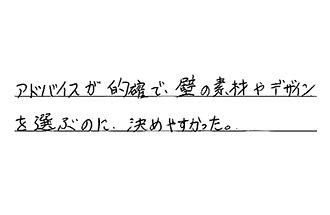 アドバイスが的確で、壁の素材やデザイン
を選ぶのに、決めやすかった。